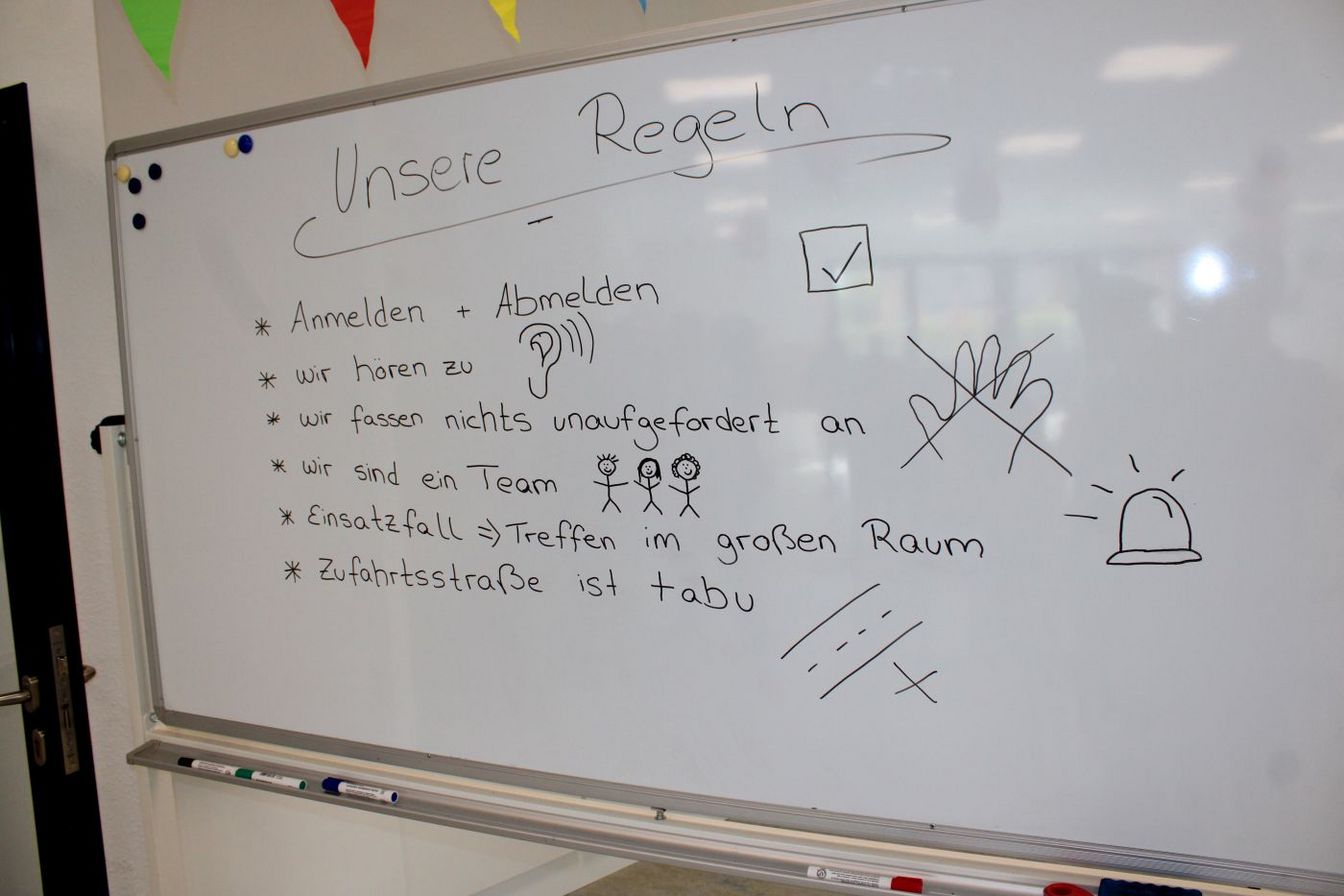 Unsere Regeln
* Anmelden + Abmelden
* wir hören zu
* wir fassen nichts unaufgefordert an
* wir sind ein Team
* Einsatzfall => Treffen im großen Raum
* Zufahrtsstraße ist tabu